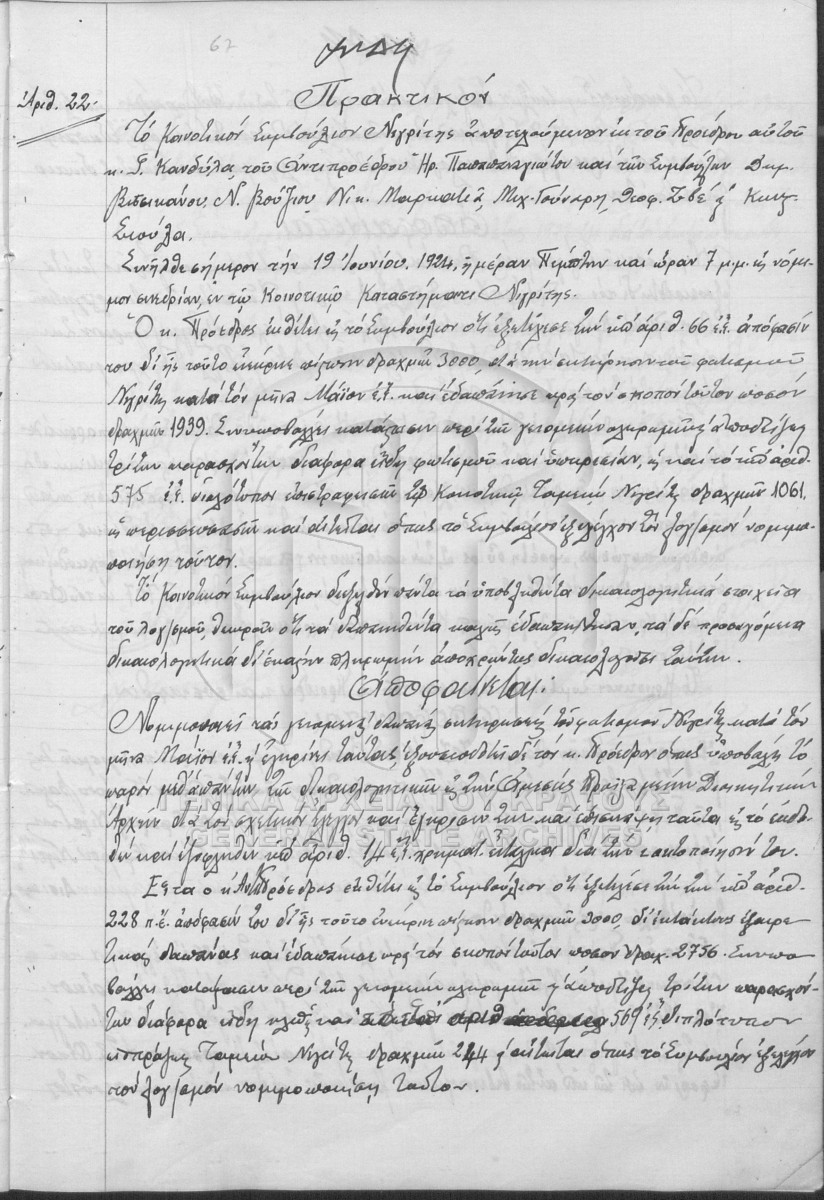 67
Ἀριθ. 22.
Πρακτικόν
Τὸ Κοινοτικὸν Συμβούλιον Νιγρίτης ἀποτελούμενον ἐκ τοῦ Προέδρου αὐτοῦ
κ. Γ. Κανδύλα, τοῦ Ἀντιπροέδρου Ἠρ. Παπαπαναγιώτου καὶ τῶν Συμβούλων Δημ.
Βιτσικάνου, Ν. Βούζιου, Νικ. Μαρκατιᾶ, Μιχ. Γούναρη, Θεοφ.
Σιούλα.
Συνῆλθε σήμερον τὴν 19 Ἰουνίου 1924, ἡμέραν Πέμπτην καὶ ὥραν 7 μ.μ. εἰς νόμι-
μον συνεδρίαν, ἐν τῷ Κοινοτικῷ Καταστήματι Νιγρίτης.
Ὁ κ. Πρόεδρος ἐκθέτει εἰς τὸ Συμβούλιον ὅτι ἐξετέλεσε τὴν ὑπ' ἀριθ. 66 ἐ.ἔ. ἀπόφασίν
του δι' ἧς τοῦτο ἐνέκρινε πίστωσιν δραχμῶν 3000, διὰ τὴν συντήρησιν τοῦ φωτισμοῦ
Νιγρίτης κατὰ τὸν μῆνα Μάϊον ἐ.ἔ. καὶ ἐδαπάνησε πρὸς τὸν σκοπὸν τοῦτον ποσὸν
δραχμῶν 1939. Συνυποβάλλει κατάστασιν περὶ τῶν γενομένων πληρωμῶν ἀποδείξεις
τρίτων παρασχόντων διάφορα εἴδη φωτισμοῦ καὶ ὑπηρεσίαν, ὡς καὶ τὸ ὑπ' ἀριθ.
575 ἐ.ἔ. διπλότυπον ἐπιστροφῆς τῷ Κοινοτικῷ Ταμείῳ Νιγρίτης δραχμῶν 1061,
ὡς περισσευσασῶν καὶ αἰτεῖται ὅπως τὸ Συμβούλιον ἐξελέγχον τὸν λογ/σμὸν νομιμο-
ποιήσῃ τοῦτον.
Τὸ Κοινοτικὸν Συμβούλιον διεξελθὸν πάντα τὰ ὑποβληθέντα δικαιολογητικὰ στοιχεῖα
τοῦ λογ/σμοῦ, θεωροῦν ὅτι τὰ δαπανηθέντα καλῶς ἐδαπανήθησαν, τὰ δὲ προσαγόμενα
δικαιολογητικὰ δι' ἑκάστην πληρωμὴν ἀποχρώντως δικαιολογοῦσι ταύτην.
Ἀποφαίνεται:
Νομιμοποιεῖ τὰς γενομένας δαπάνας συντηρήσεως τοῦ φωτισμοῦ Νιγρίτης κατὰ τὸν
μῆνα Μάϊον ἐ.ἔ. ἐγκρίνει ταύτας, ἐξουσιοδοτεῖ δὲ τὸν κ. Πρόεδρον ὅπως ὑποβάλῃ τὸ
παρὸν μεθ' ἁπάντων τῶν δικαιολογητικῶν εἰς τὴν Ἀμέσως Προϊσταμένην Διοικητικὴν
Ἀρχὴν διὰ τὸν σχετικὸν ἔλεγχον καὶ ἔγκρισίν των καὶ ἐπισυνάψῃ ταῦτα εἰς τὸ ἐκδο-
θὲν καὶ ἐξοφληθὲν ὑπ' ἀριθ. 14 ἐ.ἔ. χρηματ. ἔνταλμα διὰ τὴν τακτοποίησίν του.
Εἶτα ὁ κ. Ἀντιπρόεδρος ἐκθέτει εἰς τὸ Συμβούλιον ὅτι ἐξετέλεσε τὴν ὑπ' ἀριθ.
228 π.ἔ. ἀπόφασίν του δι' ἧς τοῦτο ἐνέκρινε πίστωσιν δραχμῶν 3000, δι' ἐκτάκτους ἐξαιρε-
τικὰς δαπάνας καὶ ἐδαπάνησε πρὸς τὸν σκοπὸν τοῦτον ποσὸν δραχ. 2756. Συνυπο-
βάλλει κατάστασιν περὶ τῶν γενομένων πληρωμῶν ἀποδείξεις τρίτων παρασχόν-
των διάφορα εἴδη καὶ 569 ἐ.ἔ. διπλότυπον
εἰσπράξεως Ταμείου Νιγρίτης δραχμῶν 244 αἰτεῖται ὅπως τὸ Συμβούλιον ἐξελέγχον
τὸν λογ/σμὸν νομιμοποιήσῃ τοῦτον.
ΓΕΝΙΚΑ ΑΡΧΕΙΑ ΤΟΥ ΚΡΑΤΟΥΣ
GENERAL STATE ARCHIVES